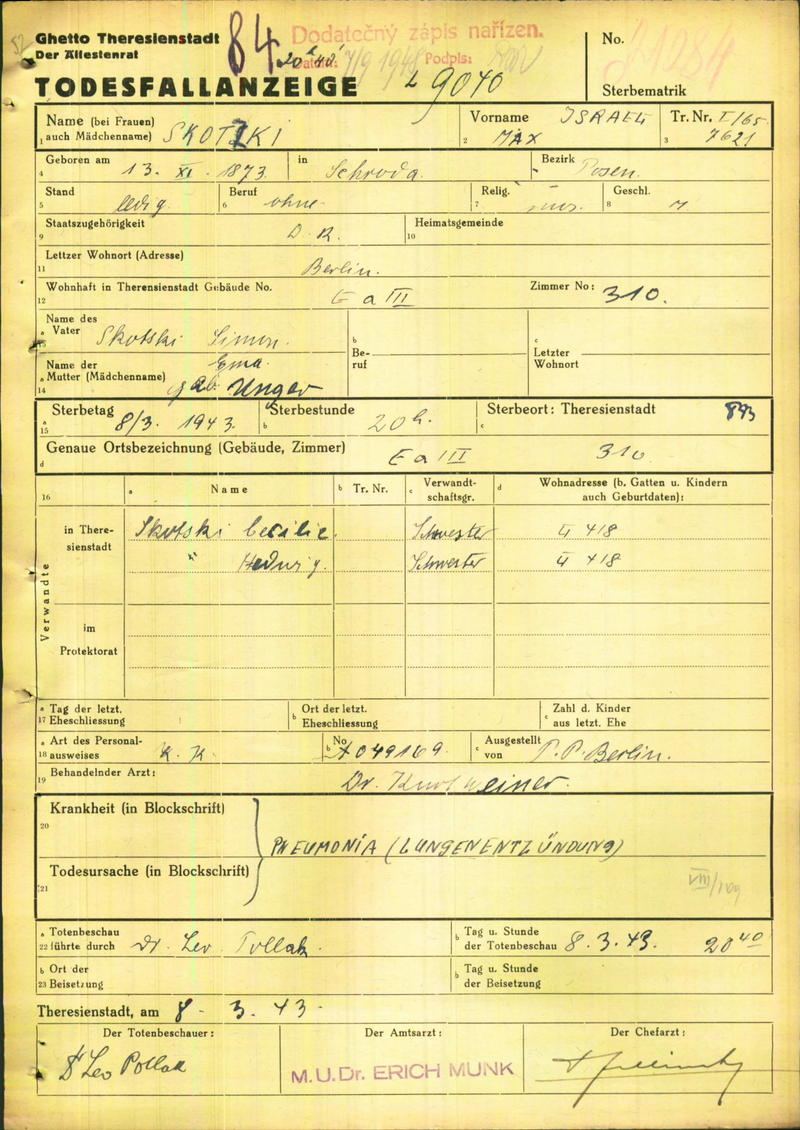 Ghetto Theresienstadt
Der Ältestenrat
84
Dodatečný zápis nařízen.
Podpis:
TODESFALLANZEIGE
L 9040
No.
21084
Sterbematrik
Name (bei Frauen)
1 auch Mädchenname) SKOTZKI
Vorname ISRAEL
2 MAX
Tr. Nr. I/65
3 7621
Geboren am 13. XI. 1873
4
in Schroda
Bezirk Posen.
Stand ledig
5
Beruf ohne
6
Relig.
7
Geschl.
8
Staatszugehörigkeit D. R.
9
Heimatsgemeinde
10
Letzter Wohnort (Adresse)
11 Berlin.
Wohnhaft in Theresienstadt Gebäude No. E a III
12
Zimmer No: 310.
Name des
a Vater Skotski Simon.
b
Beruf
c
Letzter
Wohnort
Name der
a Mutter (Mädchenname) geb. Unger
14
Sterbetag 8/3. 1943.
a
15
Sterbestunde 20 h.
b
Sterbeort: Theresienstadt 893
c
Genaue Ortsbezeichnung (Gebäude, Zimmer) E a III 310
d
16
a Name
b Tr. Nr.
c Verwandt-
schaftsgr.
d Wohnadresse (b. Gatten u. Kindern
auch Geburtdaten):
Verwandte
in There-
sienstadt
Skotski Cecilie. Schwester 418
" Hedwig. Schwester 418
im
Protektorat
a Tag der letzt.
17 Eheschliessung
b Ort der letzt.
Eheschliessung
c Zahl d. Kinder
aus letzt. Ehe
a Art des Personal-
18 ausweises K. K.
b No A 049169
c Ausgestellt
von P. P. Berlin.
Behandelnder Arzt:
19 Dr. Kurt Weiner.
Krankheit (in Blockschrift)
20
PNEUMONIA (LUNGENENTZÜNDUNG)
Todesursache (in Blockschrift)
21
VIII/109
a Totenbeschau
22 führte durch Dr. Leo Pollak.
b Tag u. Stunde
der Totenbeschau 8. 3. 43. 20 40
b Ort der
23 Beisetzung
b Tag u. Stunde
der Beisetzung
Theresienstadt, am 8 - 3. 43 -
Der Totenbeschauer:
Dr Leo Pollak
Der Amtsarzt:
M.U.Dr. ERICH MUNK
Der Chefarzt: